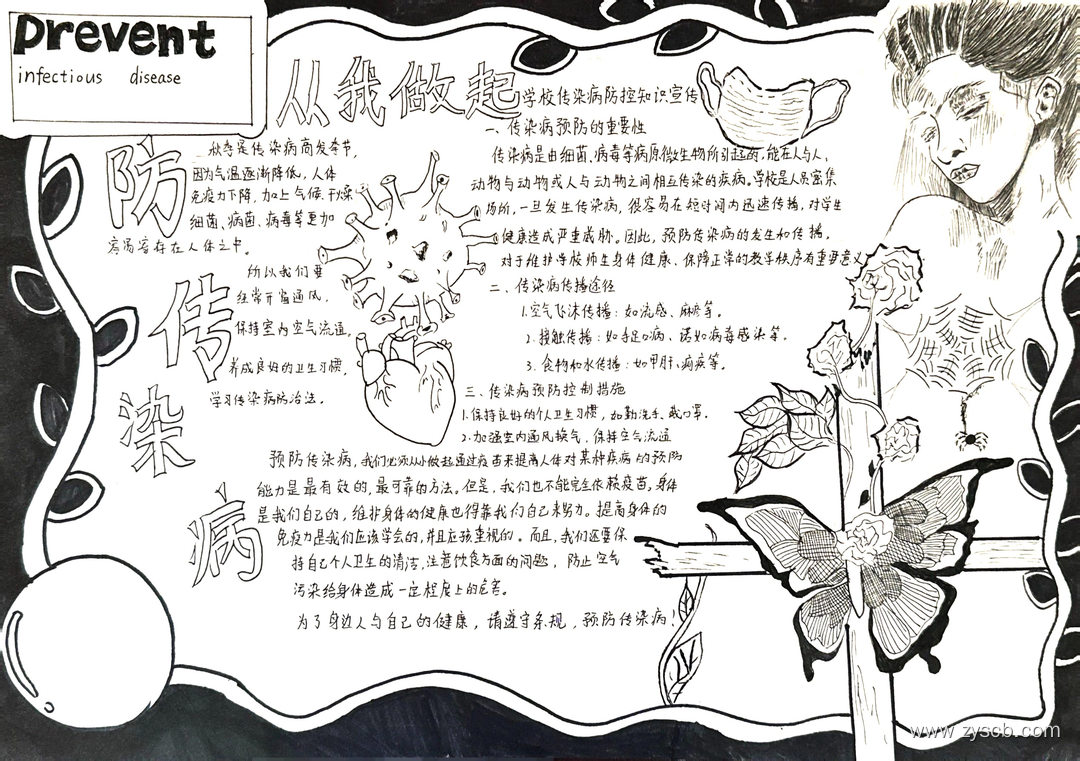 prevent
infectious disease
从我做起
防
传
染
病
学校传染病防控知识宣传
秋季是传染病高发季节,
因为气温逐渐降低,人体
免疫力下降,加上气候干燥
细菌、病菌、病毒等更加
容易寄存在人体之中。
所以我们要
经常开窗通风,
保持室内空气流通,
养成良好的卫生习惯,
学习传染病防治法。
一、传染病预防的重要性
传染病是由细菌、病毒等病原微生物所引起的,能在人与人、
动物与动物或人与动物之间相互传染的疾病。学校是人员密集
场所,一旦发生传染病,很容易在短时间内迅速传播,对学生
健康造成严重威胁。因此,预防传染病的发生和传播,
对于维护学校师生身体健康、保障正常的教学秩序有重要意义
二、传染病传播途径
1.空气飞沫传播:如流感、麻疹等。
2.接触传播:如手足口病、诺如病毒感染等。
3.食物和水传播:如甲肝、痢疾等。
三、传染病预防控制措施
1.保持良好的个人卫生习惯,如勤洗手、戴口罩。
2.加强室内通风换气,保持空气流通
预防传染病,我们必须从小做起通过疫苗来提高人体对某种疾病的预防
能力是最有效的,最可靠的方法。但是,我们也不能完全依赖疫苗,身体
是我们自己的,维护身体的健康也得靠我们自己来努力。提高身体的
免疫力是我们应该学会的,并且应该重视的。而且,我们还要保
持自己个人卫生的清洁,注意饮食方面的问题,防止空气
污染给身体造成一定程度上的危害。
为了身边人与自己的健康,请遵守条规,预防传染病!
www.zyscb.com